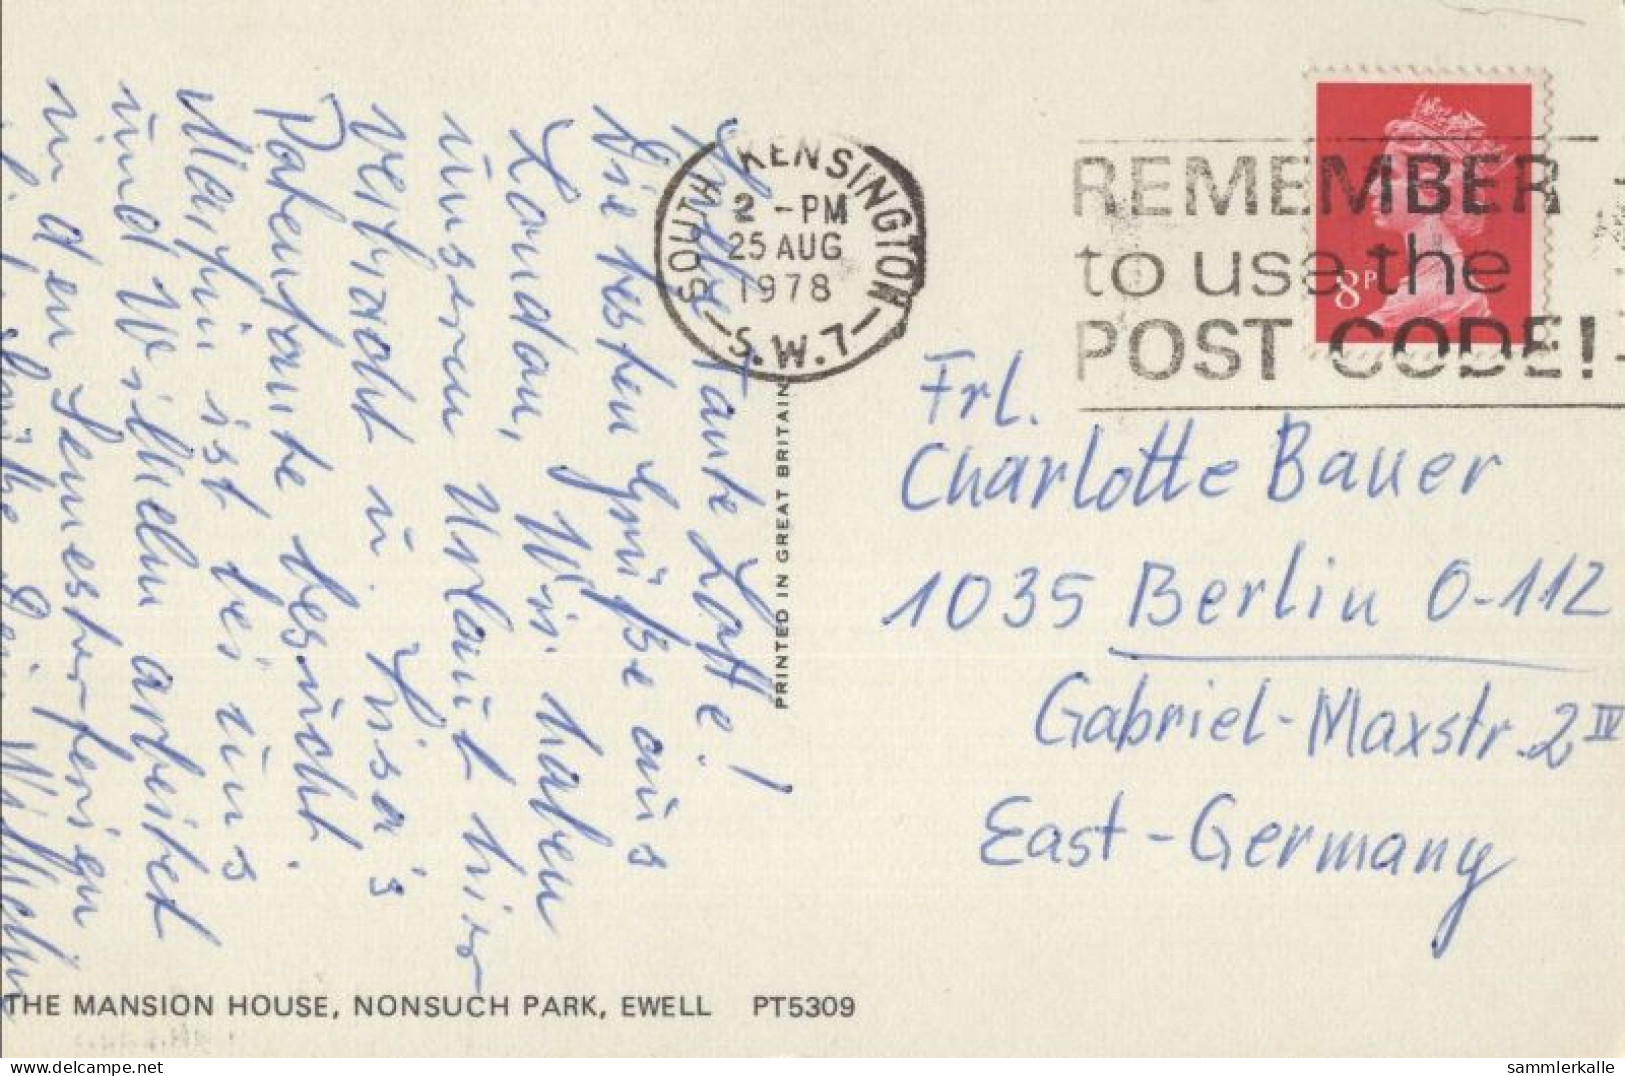 Liebe Tante Lotte!
Die besten Grüße aus
London. Wir haben
unseren Urlaub hier
verbracht u. Lisa's
Patentante besucht.
Martin ist bei uns
und Wilhelm arbeitet
in den Semesterferien.
Dein Wilhelm
SOUTH KENSINGTON
2 - PM
25 AUG
1978
S.W.7
REMEMBER
to use the
POST CODE!
8P
Frl.
Charlotte Bauer
1035 Berlin O-112
Gabriel-Maxstr. 2 IV
East-Germany
PRINTED IN GREAT BRITAIN
THE MANSION HOUSE, NONSUCH PARK, EWELL PT5309
sammlerkalle